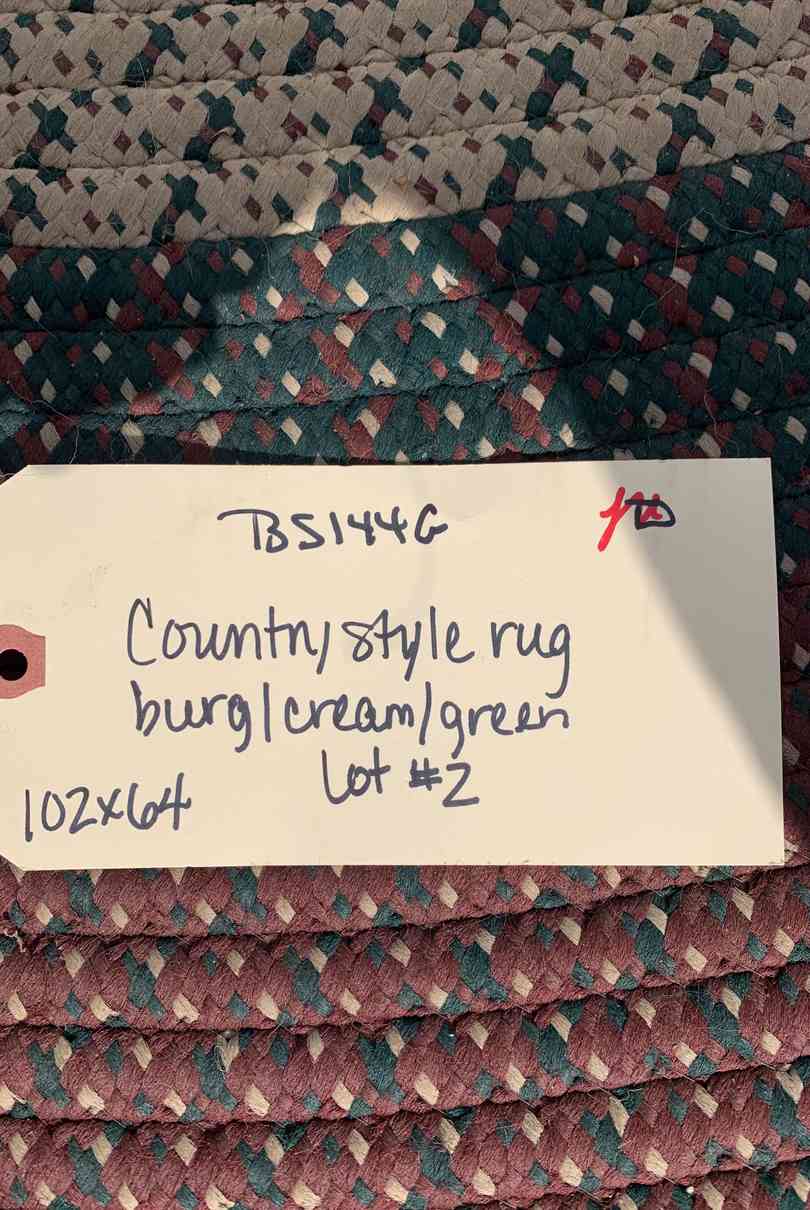 BS144G
Country style rug
burg/cream/green
Lot #2
102x64